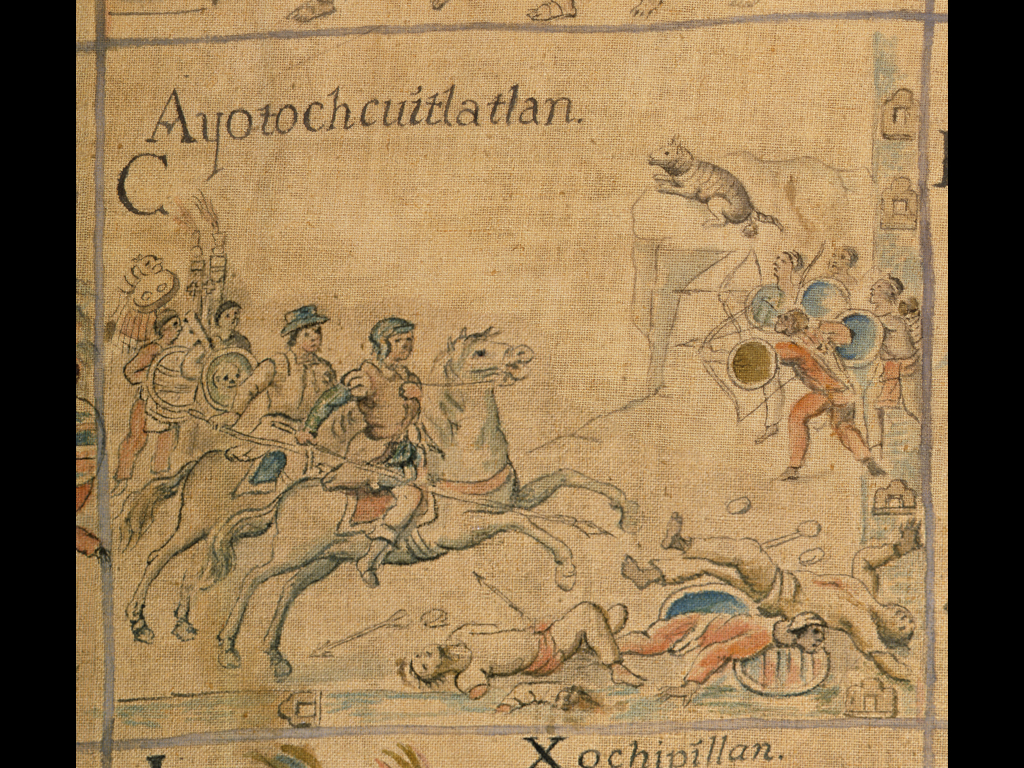 Ayotochcuitlatlan.
C
Xochipillan.